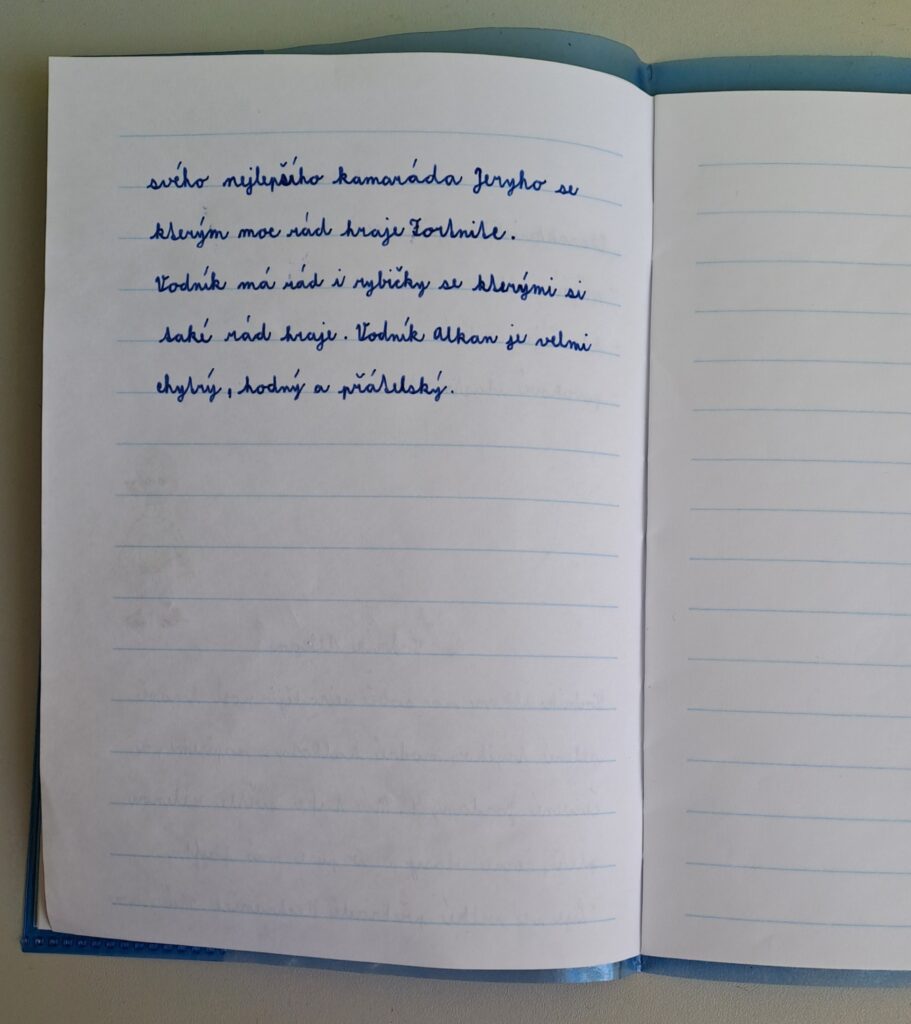 svého nejlepšího kamaráda Jeryho se
kterým moc rád hraje Fortnite.
Vodník má rád i rybičky se kterými si
také rád hraje. Vodník Alkan je velmi
chytrý, hodný a přátelský.